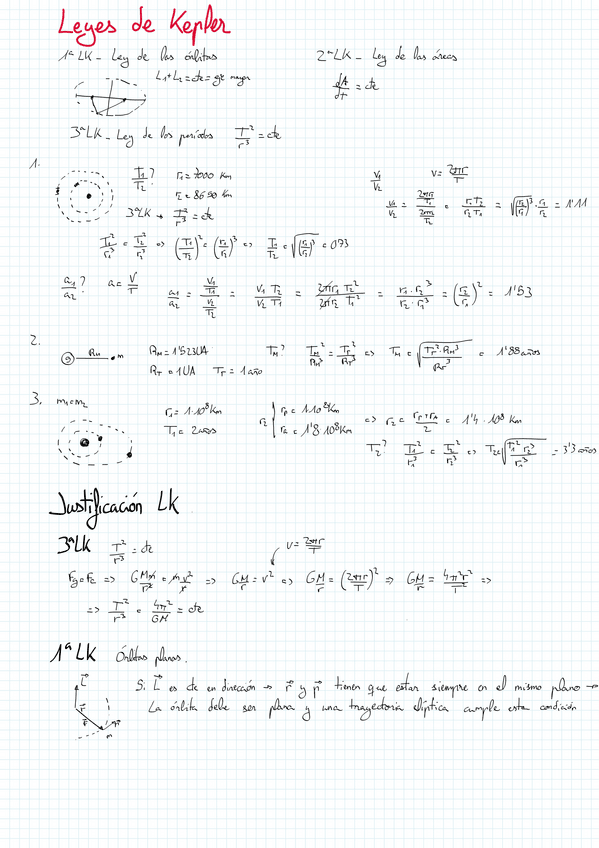 Leyes de Kepler
1ª LK - Ley de las órbitas
L₁+L₂ = cte = eje mayor
2ª LK - Ley de las áreas
dA/dt = cte
3ª LK - Ley de los períodos T²/r³ = cte
1.
T₁/T₂? r₁ = 7000 Km
r₂ = 8650 Km
3ª LK → T²/r³ = cte
T₁²/r₁³ = T₂²/r₂³ ⇔ (T₁/T₂)² = (r₁/r₂)³ ⇔ T₁/T₂ = √(r₁/r₂)³ = 0'73
V₁/V₂ V = 2πr/T
V₁/V₂ = (2πr₁/T₁)/(2πr₂/T₂) = r₁T₂/r₂T₁ = √(r₂/r₁)³ · r₁/r₂ = 1'11
a₁/a₂? a = V/T
a₁/a₂ = (V₁/T₁)/(V₂/T₂) = V₁ T₂/V₂ T₁ = 2πr₁ T₂²/2πr₂ T₁² = r₁ · r₂³/r₂ · r₁³ = (r₂/r₁)² = 1'53
2.
R_M m
R_M = 1'523UA
R_T = 1UA T_T = 1 año
T_M? T_M²/R_M³ = T_T²/R_T³ ⇔ T_M = √(T_T² · R_M³/R_T³) = 1'88 años
3. m₁=m₂
r₁ = 1·10⁸ Km
T₁ = 2 años
r₂ { r_P = 1·10⁸ Km
r_A = 1'8·10⁸ Km
⇔ r₂ = (r_P+r_A)/2 = 1'4 · 10⁸ Km
T₂? T₁²/r₁³ = T₂²/r₂³ ⇔ T₂ = √(T₁² r₂³/r₁³) = 3'3 años
Justificación LK
3ª LK T²/r³ = cte
V = 2πr/T
Fg = Fc ⇒ GMm/r² = m v²/r ⇒ GM/r = v² ⇔ GM/r = (2πr/T)² ⇒ GM/r = 4π²r²/T² ⇒
⇒ T²/r³ = 4π²/GM = cte
1ª LK Órbitas planas.
L⃗
r⃗
m
Si L⃗ es cte en dirección → r⃗ y p⃗ tienen que estar siempre en el mismo plano →
La órbita debe ser plana y una trayectoria elíptica cumple esta condición